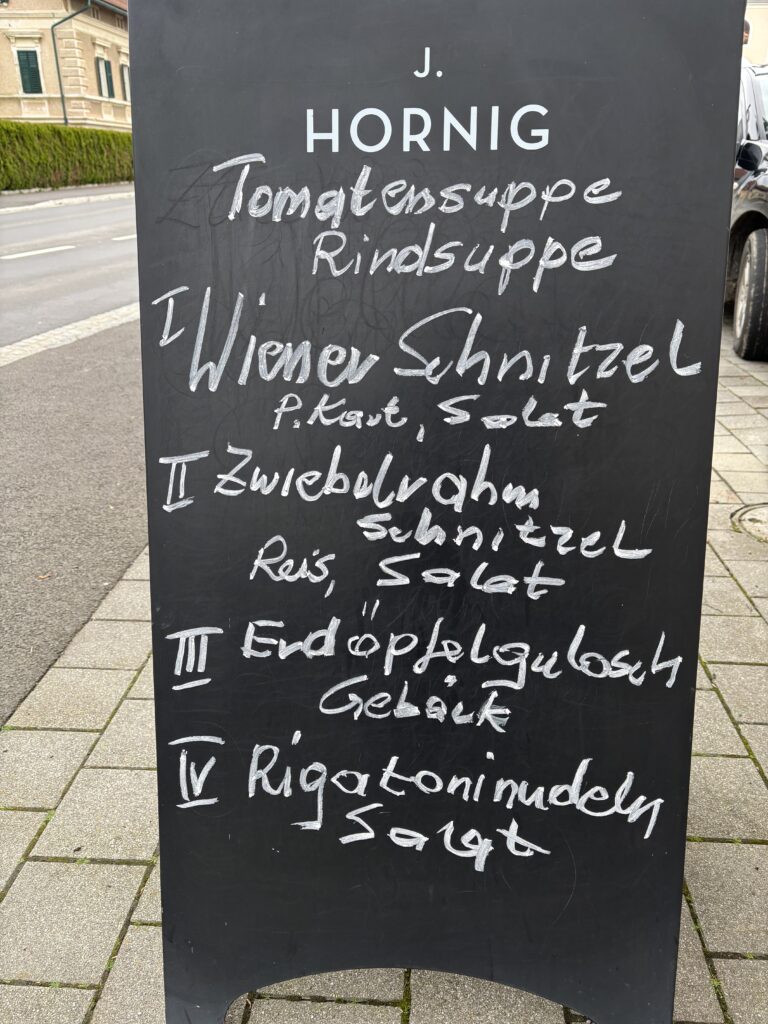 J.
HORNIG
Tomatensuppe
Rindsuppe
I Wiener Schnitzel
P. Kart, Salat
II Zwiebelrahm
Schnitzel
Reis, Salat
III Erdöpfelgulosch
Gebäck
IV Rigatoninudeln
Salat